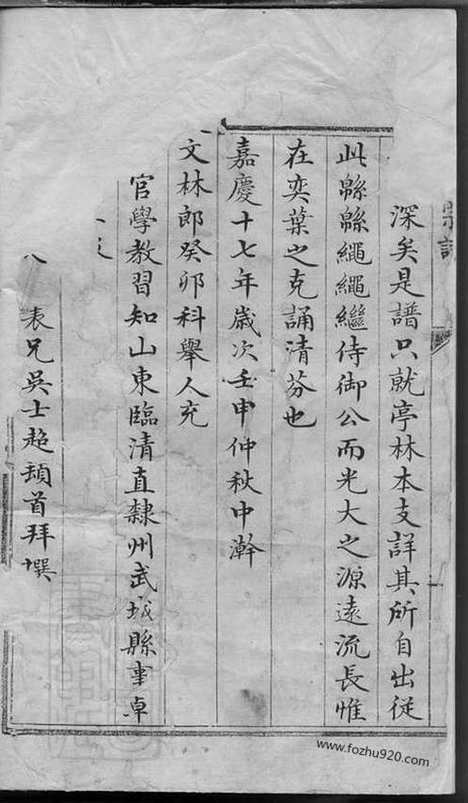 宗譜
深矣是譜只就亭林本支詳其所自出從
此緜緜繩繩繼侍御公而光大之源遠流長惟
在奕葉之克誦清芬也
嘉慶十七年歲次壬申仲秋中澣
文林郎癸卯科舉人充
官學教習知山東臨清直隸州武城縣事卓
表兄吳士超頓首拜撰
www.fozhu920.com